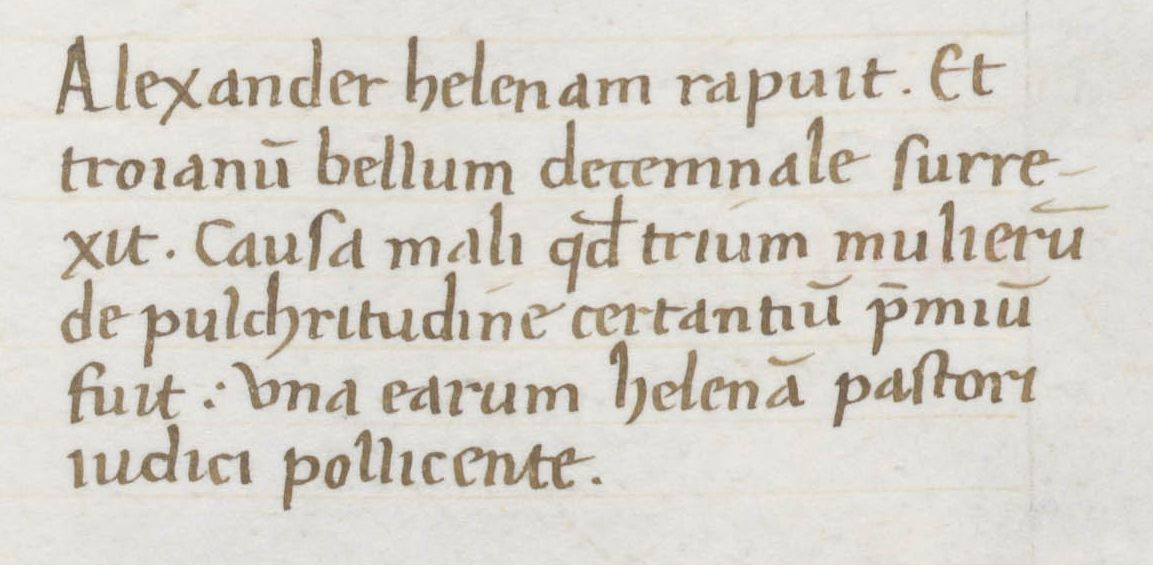 Alexander helenam rapuit. Et
troianū bellum decemnale ſurre-
xit. Cauſa mali qd̄ trium mulierū
de pulchritudine certantiū p̄miū
fuit : Vna earum helenā paſtori
iudici pollicente.